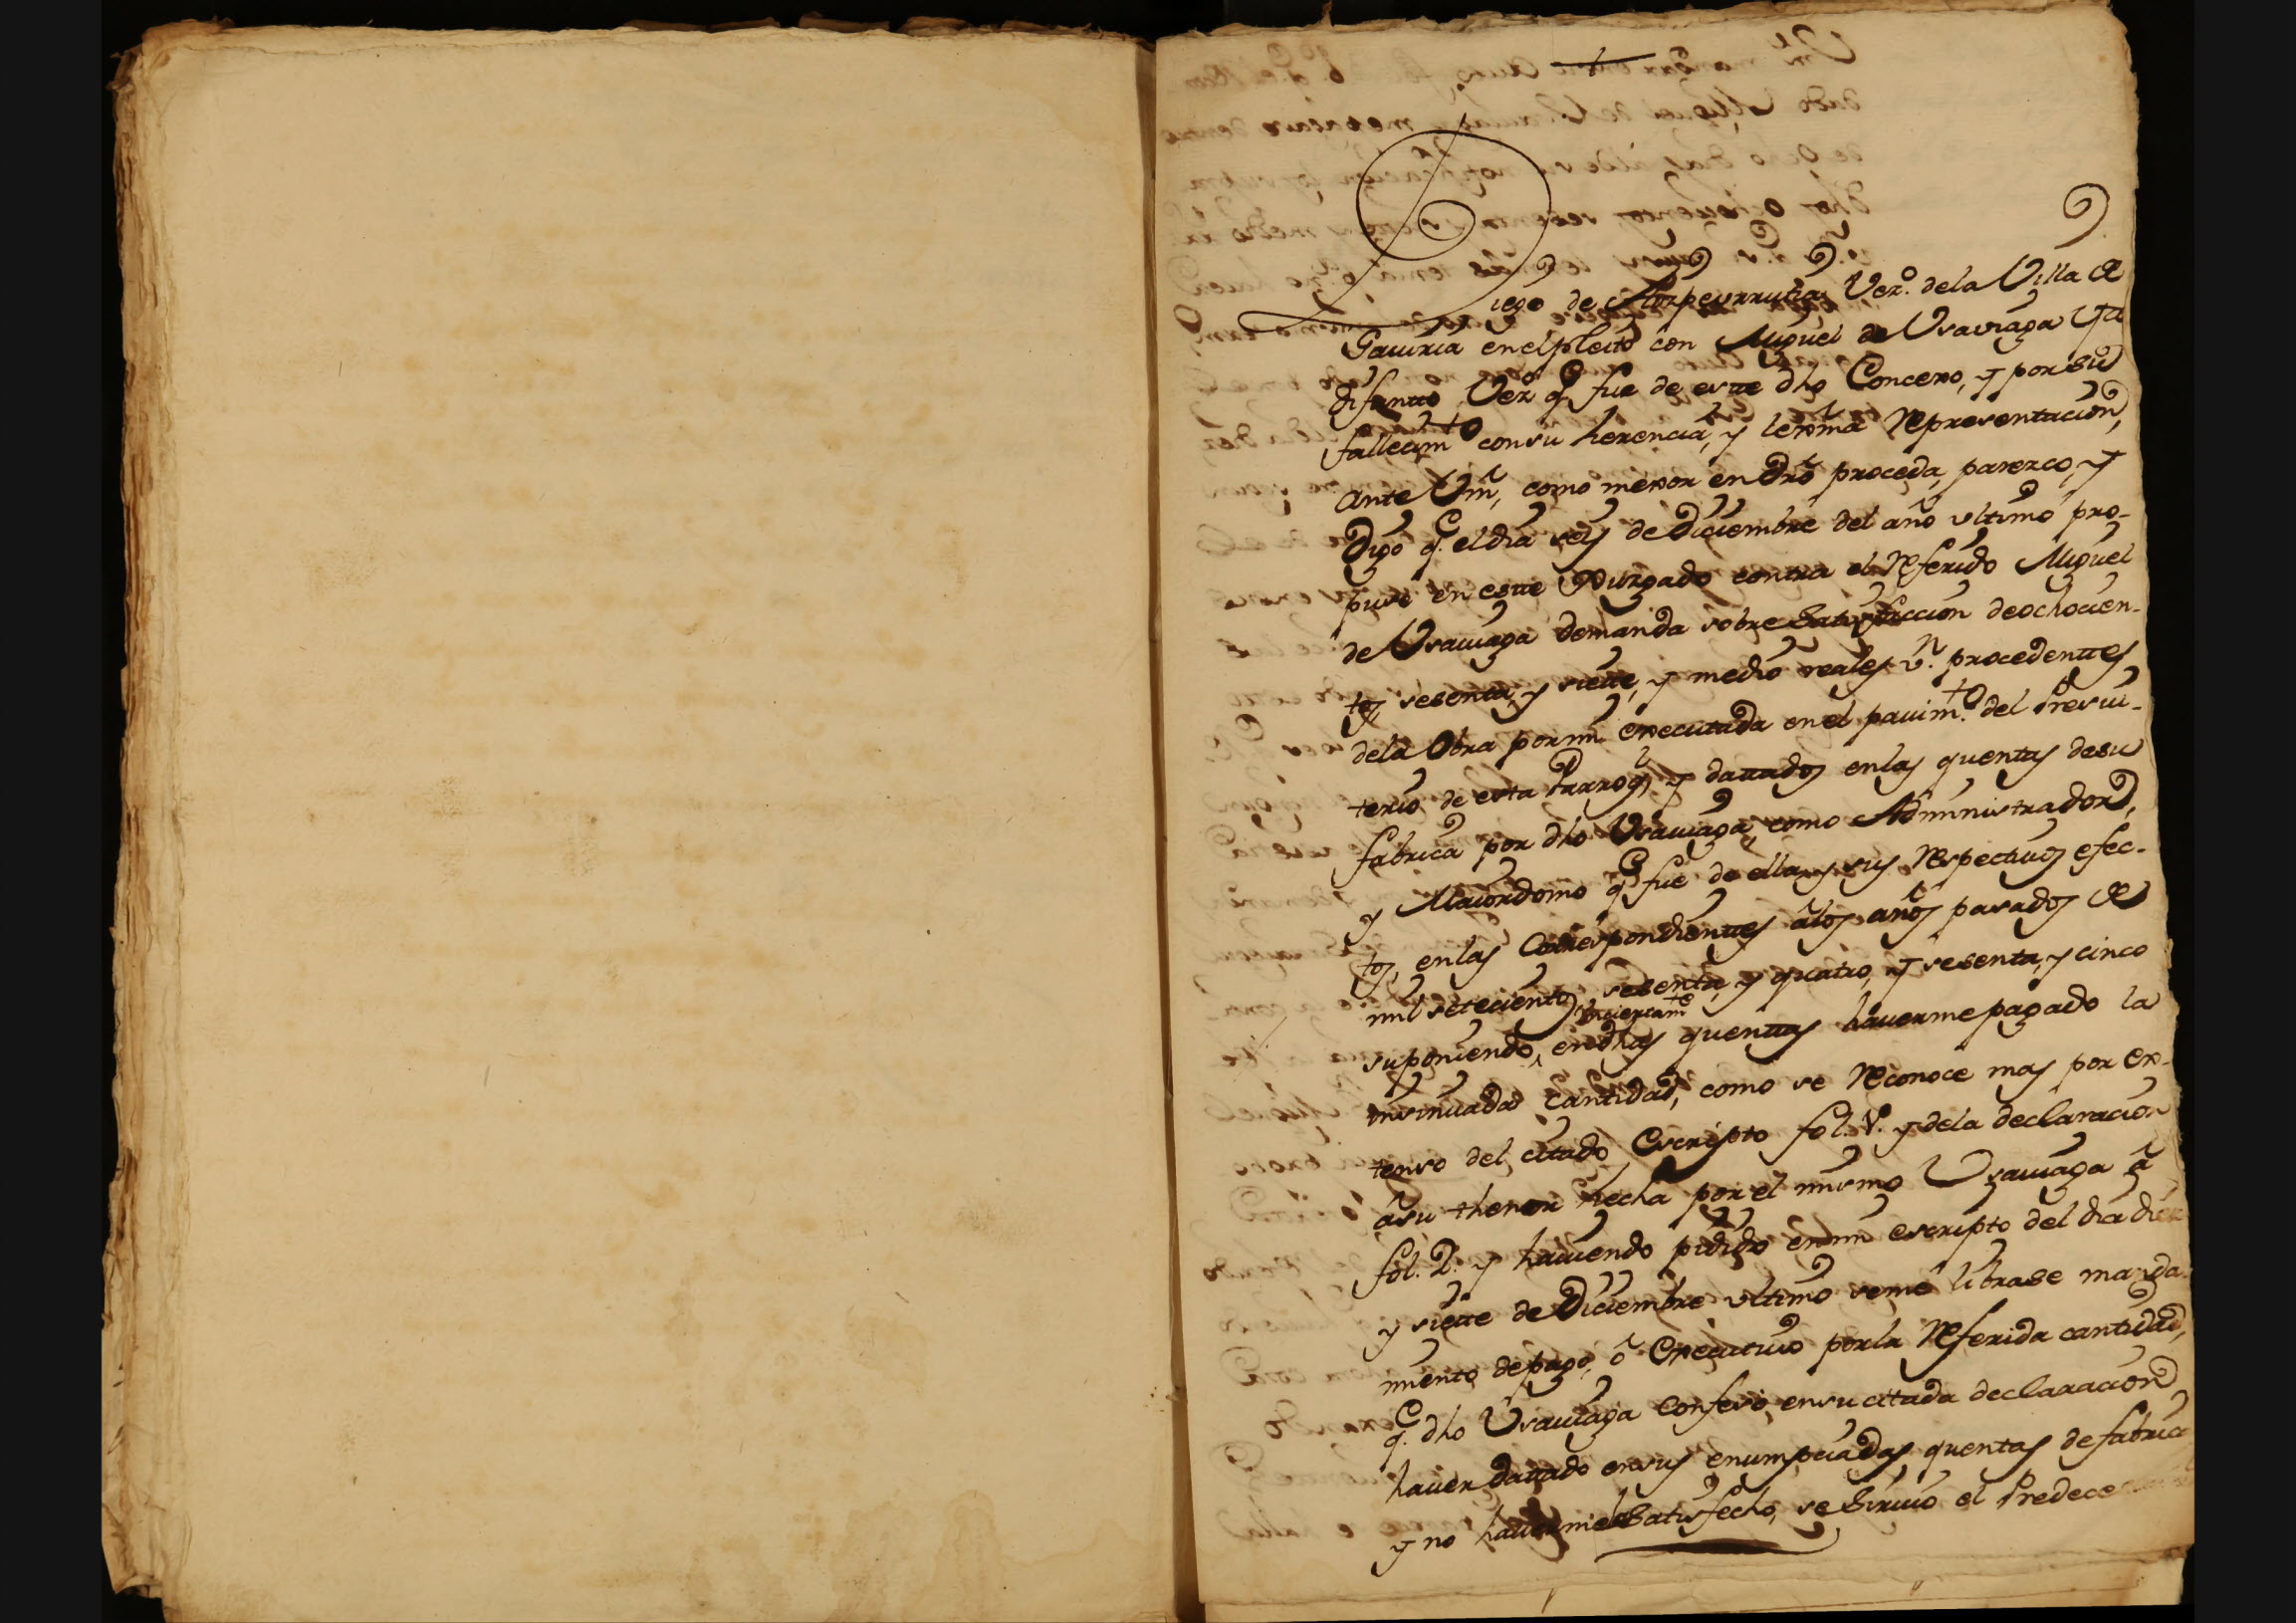 Diego de Aurpeurrutia, Vez.º dela Villa de
Gaviria en el pleito con Miguel de Usauiaga ya
difunto Vez.º q. fue de este dho Concexo, y por su
fallecim.to con su herencia, y lexma representacion,
ante Vm, como mexor en dro proceda, parezco, y
Digo q. el dia seis de Diciembre del año ultimo pro-
puse en este Juzgado contra el referido Miguel
de Usauiaga demanda sobre satisfaccion de ochocien-
tos, sesenta, y siette, y medio reales v.n procedenttes
dela Obra por mi executada en el pauim.to del Presvi-
terio de esta Parroq.l y dattados en las quentas de su
fabrica por dho Usauiaga, como Administrador,
y Maiordomo q. fue de ella, y sus respectiuos efec-
tos, en las Correspondienttes â los años pasados de
mil setecientos, sesenta, y quatro, y sesenta, y cinco
inciertam.te
suponiendo, en dhas quenttas hauerme pagado la
insinuada cantidad, como se reconoce mas por ex-
tenso del citado Escripto fol. 1. y dela declaracion
â su thenor hecha por el mismo Usauiaga â
fol. 2. y hauiendo pidido en mi escripto del dia diez
y siette de Diciembre ultimo se me librase manda-
miento de pago, ô Executiuo por la referida cantidad,
q. dho Usauiaga confesó, en su cittada declaracion
hauer dattado en sus enumpciadas quentas de fabrica
y no hauermela satisfecho, se siruio el